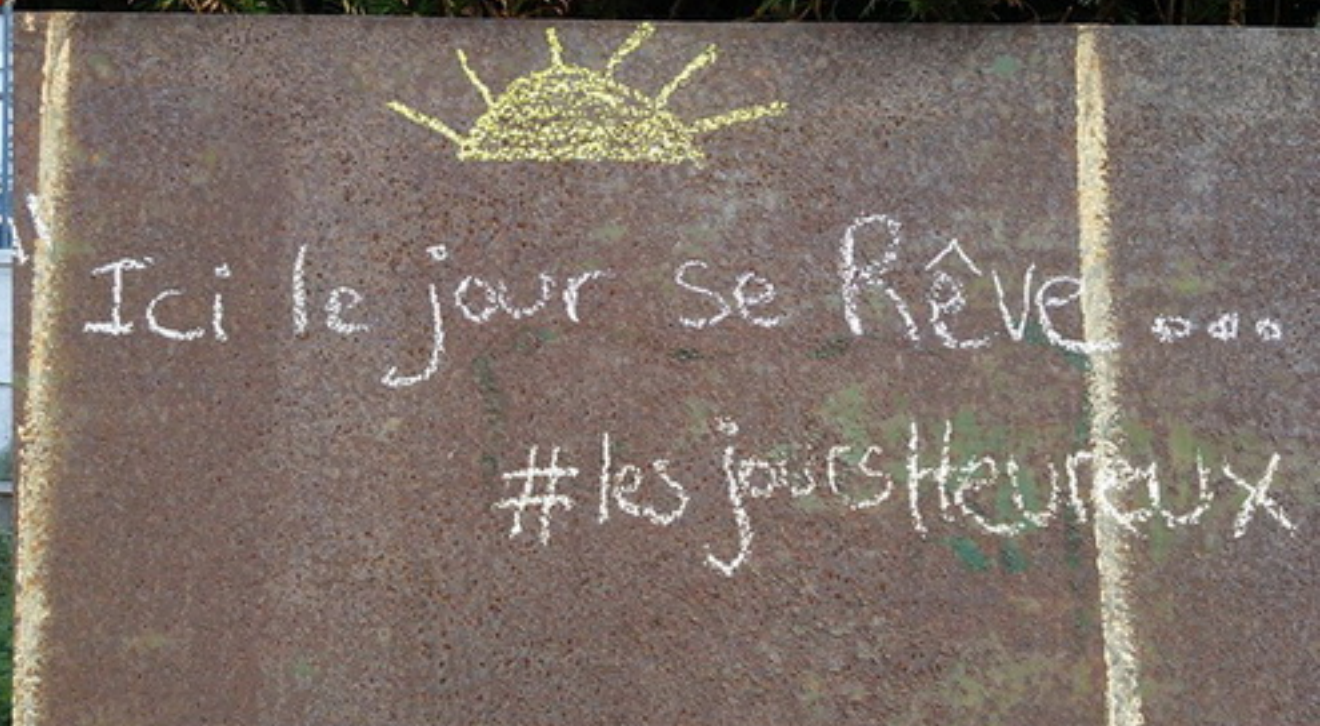 Ici le jour se Rêve...
#les joursHeureux